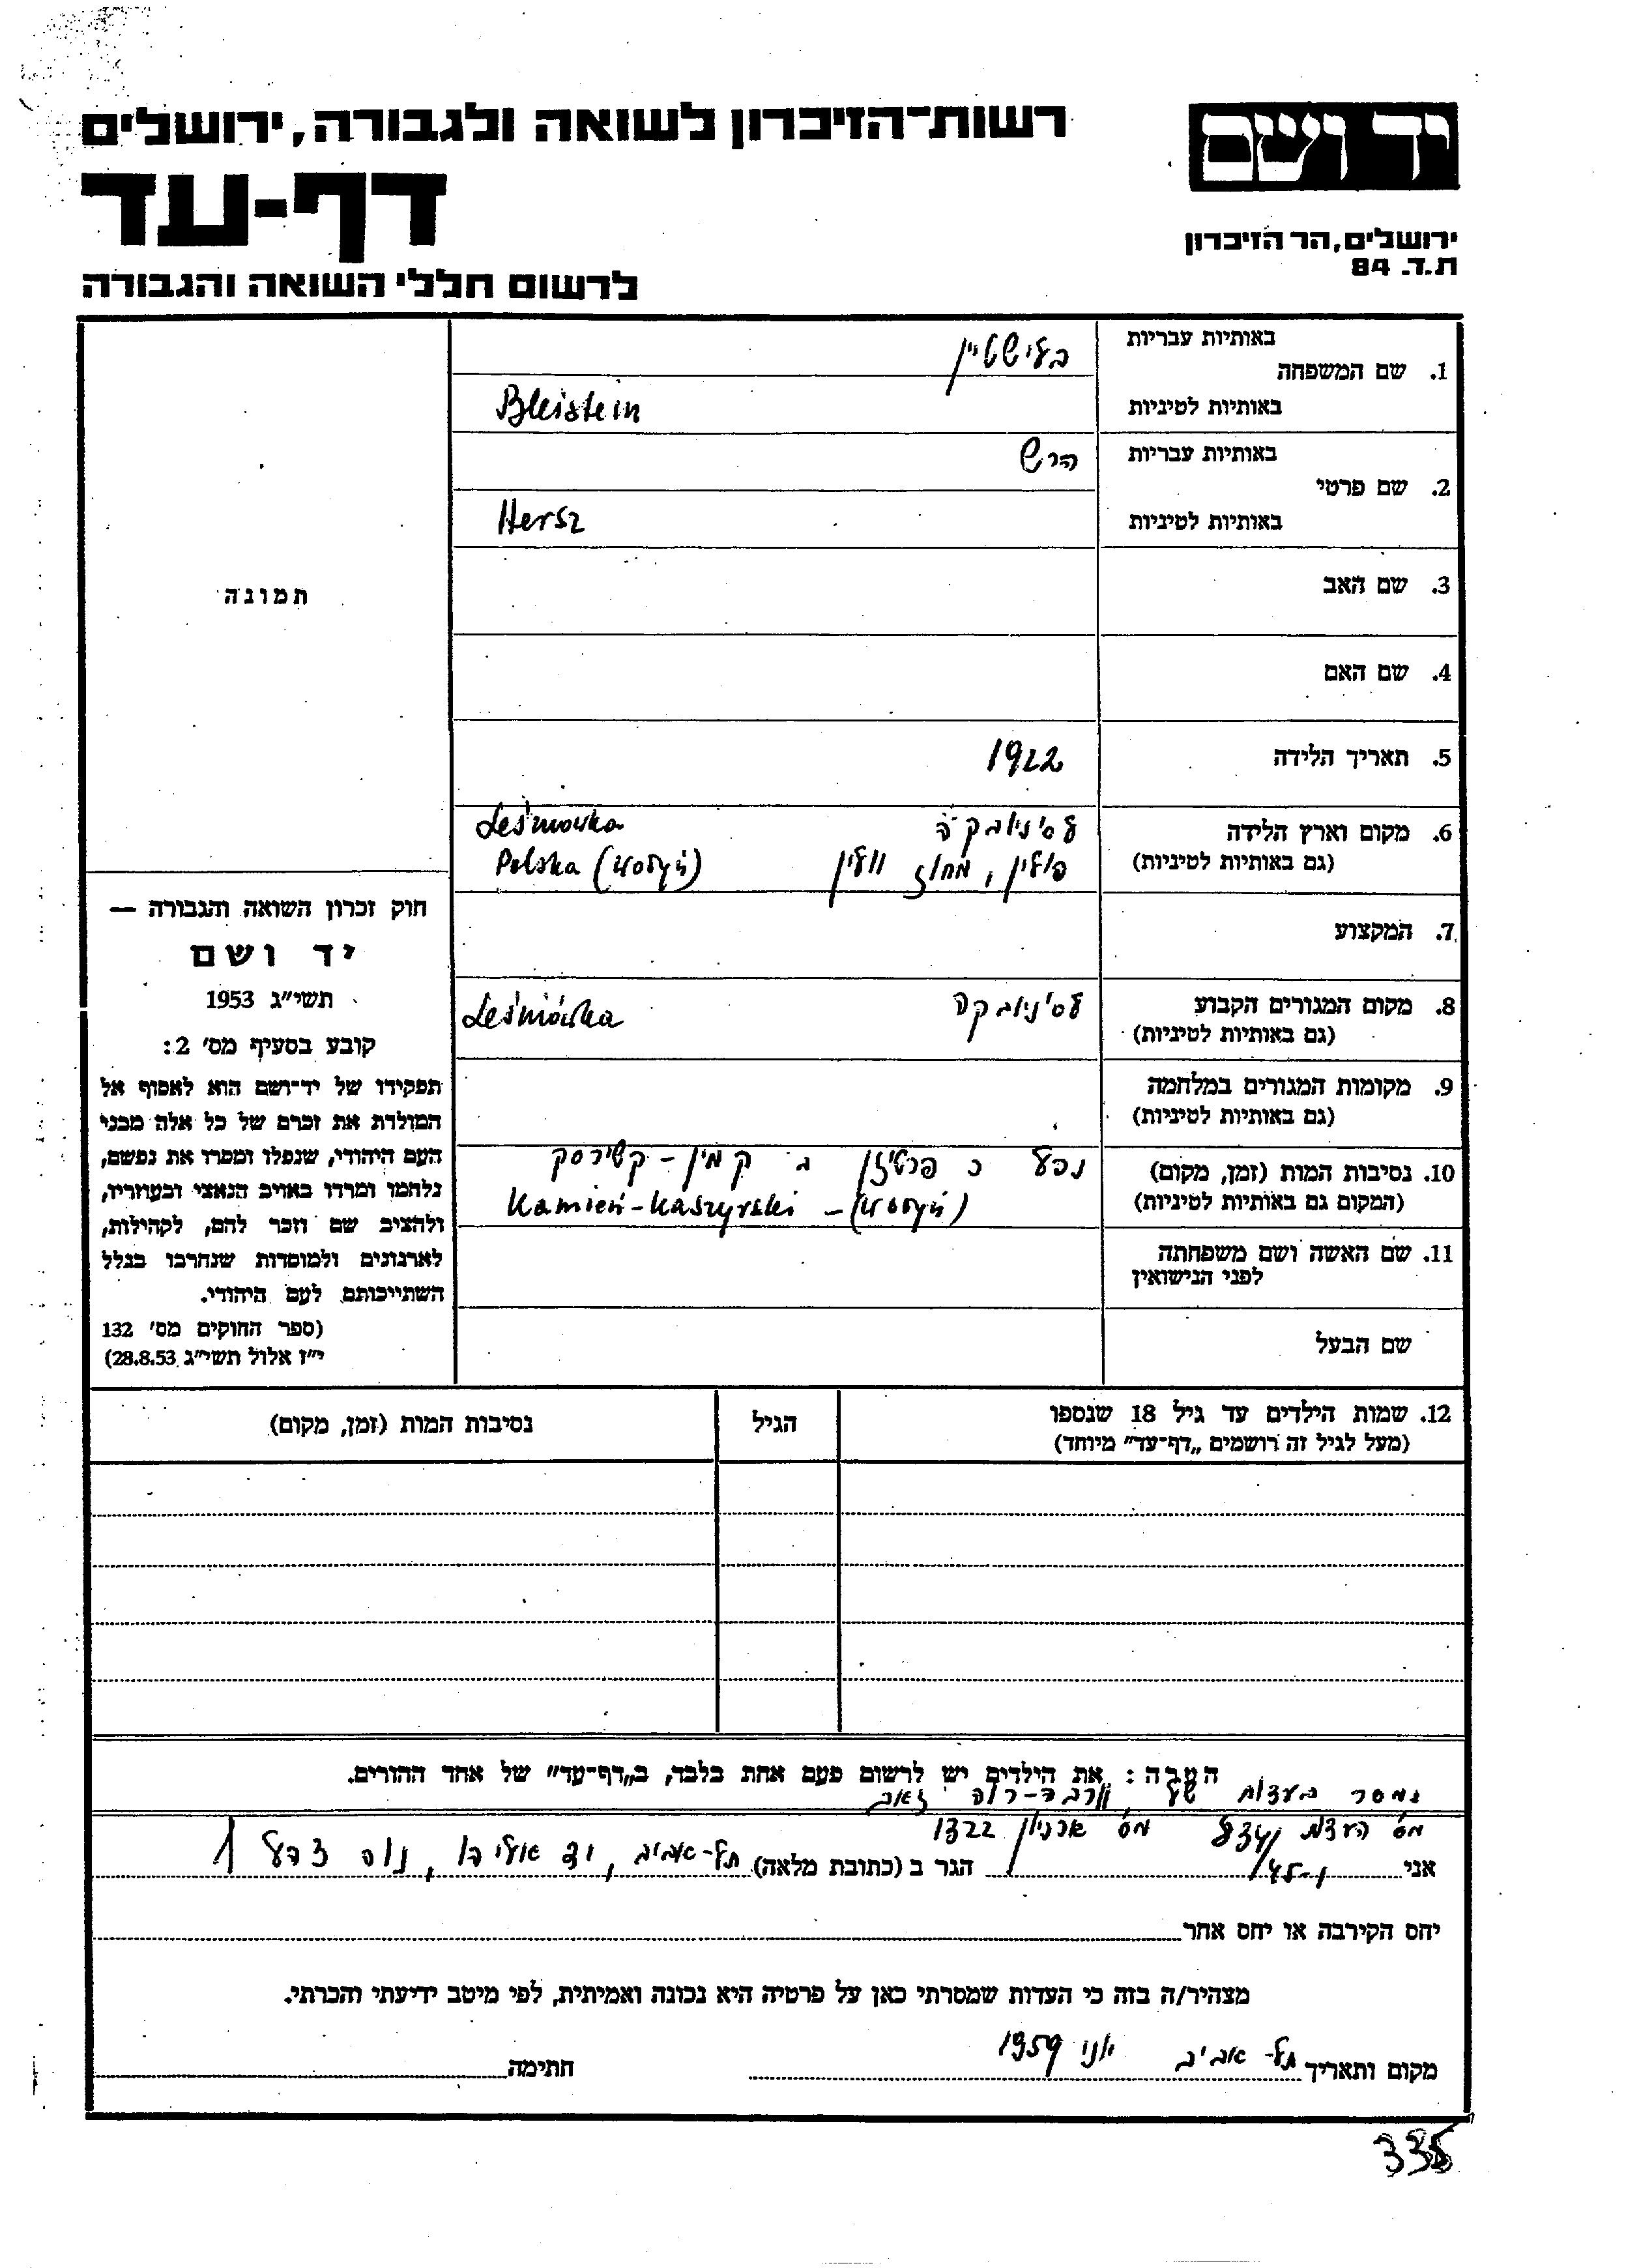 יד ושם
ירושלים, הר הזיכרון
ת.ד. 84
רשות־הזיכרון לשואה ולגבורה, ירושלים
דף-עד
לרשום חללי השואה והגבורה
באותיות עבריות
1. שם המשפחה
בלישטיין
באותיות לטיניות
Bleistein
באותיות עבריות
הרש
2. שם פרטי
באותיות לטיניות
Hersz
3. שם האב
4. שם האם
5. תאריך הלידה
1922
6. מקום וארץ הלידה
לסיניובקה
Leśniówka
(גם באותיות לטיניות)
פולין, מחוז וולין
Polska (Wołyń)
7. המקצוע
8. מקום המגורים הקבוע
לסיניובקה
Leśniówka
(גם באותיות לטיניות)
9. מקומות המגורים במלחמה
(גם באותיות לטיניות)
10. נסיבות המות (זמן, מקום)
נפל כ פרטיזן ב קמין - קשירסק
(המקום גם באותיות לטיניות)
Kamień-Kaszyrski - (Wołyń)
11. שם האשה ושם משפחתה
לפני הנישואין
שם הבעל
תמונה
חוק זכרון השואה והגבורה —
יד ושם
תשי״ג 1953
קובע בסעיף מס׳ 2:
תפקידו של יד־ושם הוא לאסוף אל
המולדת את זכרם של כל אלה מבני
העם היהודי, שנפלו ומסרו את נפשם,
נלחמו ומרדו באויב הנאצי ובעוזריו,
ולהציב שם וזכר להם, לקהילות,
לארגונים ולמוסדות שנחרבו בגלל
השתייכותם לעם היהודי.
(ספר החוקים מס׳ 132
י״ז אלול תשי״ג 28.8.53)
12. שמות הילדים עד גיל 18 שנספו
(מעל לגיל זה רושמים „דף־עד״ מיוחד)
הגיל
נסיבות המות (זמן, מקום)
הערה: את הילדים יש לרשום פעם אחת בלבד, ב„דף־עד״ של אחד ההורים.
נמסר בעדות של זאב
מס העדות מס ארכיון 1322
אני הגר ב (כתובת מלאה) תל-אביב, יד אליהו, נוה 1
יחס הקירבה או יחס אחר
מצהיר/ה בזה כי העדות שמסרתי כאן על פרטיה היא נכונה ואמיתית, לפי מיטב ידיעתי והכרתי.
מקום ותאריך תל-אביב יוני 1959 חתימה
335